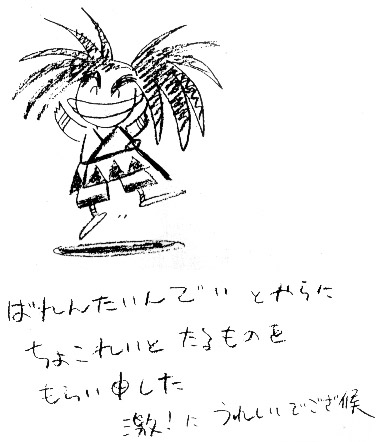 ばれんたいんでい とやらに
ちょこれいと たるものを
もらい申した
激!に うれしいでござ候